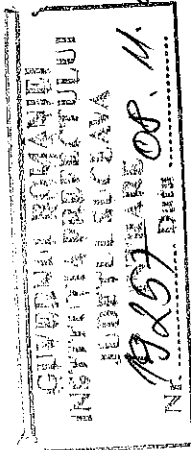 GUVERNUL ROMANIEI
INSTITUTIA PREFECTULUI
JUDETUL SUCEAVA
INTRARE
NR. 19257 08. 11.